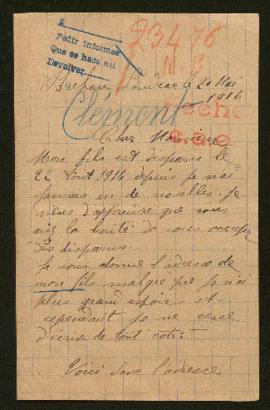 A
Pedir informes
Que se hace aqui
Devolver
234 76
le 20 Mai
1916
Clément
Cher Monsieur
Mon fils est disparu le
22 Aout 1914 depuis je n'ai
jamais eu de nouvelles. Je
viens d'apprendre que vous
la bonté de vous occuper
des disparus.
Je vous donne l'adresse de
mon fils malgré que je n'ai
plus grand espoir. et
cependant je ne cesse
d'écrire de tout cotés
Voici donc l'adresse